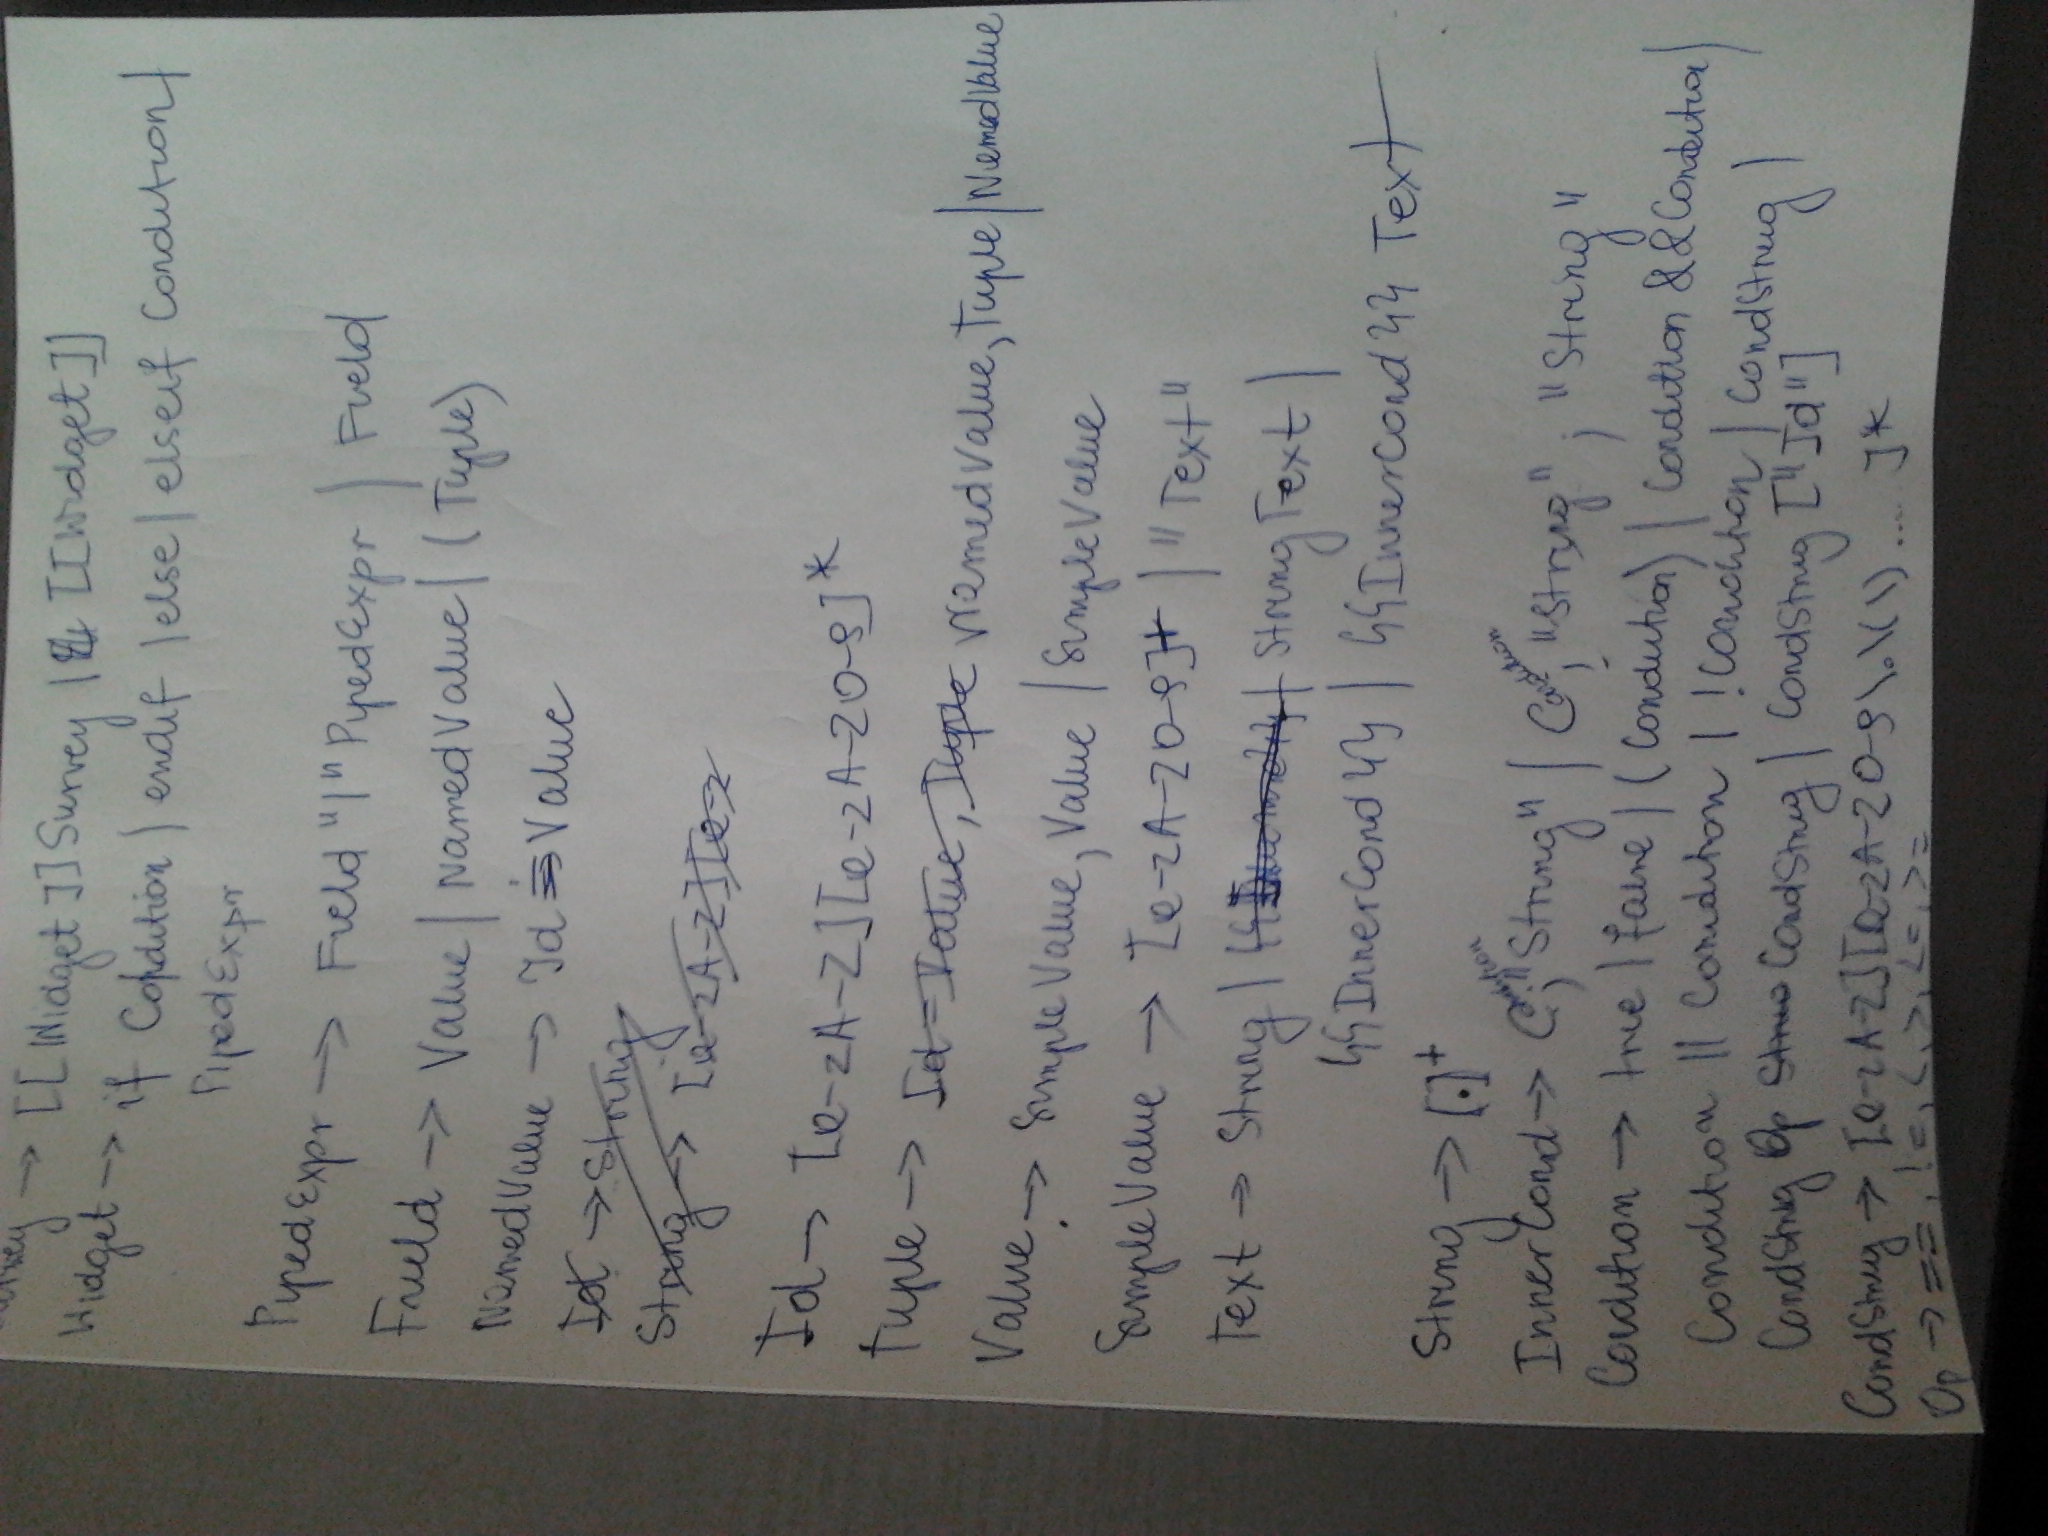 → [[Widget]] Survey | [[Widget]]
Widget → if Condition | endif | else | elseif Condition |
PipedExpr
PipedExpr → Field "|" PipedExpr | Field
Field → Value | NamedValue | (Tuple)
NamedValue → Id = Value
Id → String
String → [a-zA-Z][a-z
Id → [a-zA-Z][a-zA-Z0-9]*
Tuple → Id=Value, Tuple NamedValue, Tuple | NamedValue
Value → SimpleValue, Value | SimpleValue
SimpleValue → [a-zA-Z0-9]+ | "Text"
Text → String | String Text |
{{InnerCond}} | {{InnerCond}} Text
String → [.]+
InnerCond → Condition, "String" | Condition, "String", "String"
Condition → true | false | (Condition) | Condition && Condition |
Condition || Condition | !Condition | CondString
CondString Op CondString | CondString ["Id"] |
CondString → [a-zA-Z][a-zA-Z0-9\.\(\)... ]*
Op → ==, !=, <, >, <=, >=